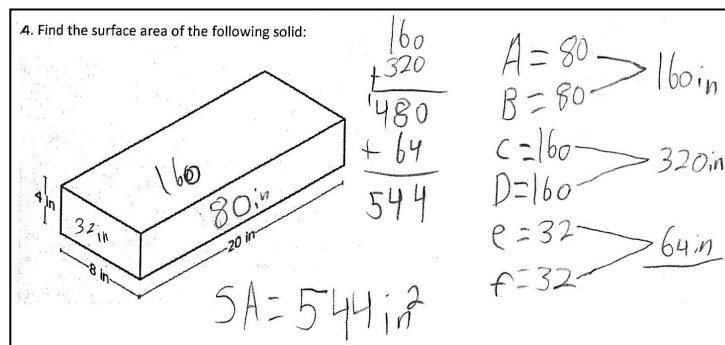 4. Find the surface area of the following solid:
160
+320
480
+ 64
544
A = 80
B = 80
160in
C = 160
D = 160
320in
e = 32
f = 32
64in
160
80in
32in
4 in
8 in
20 in
SA = 544in²